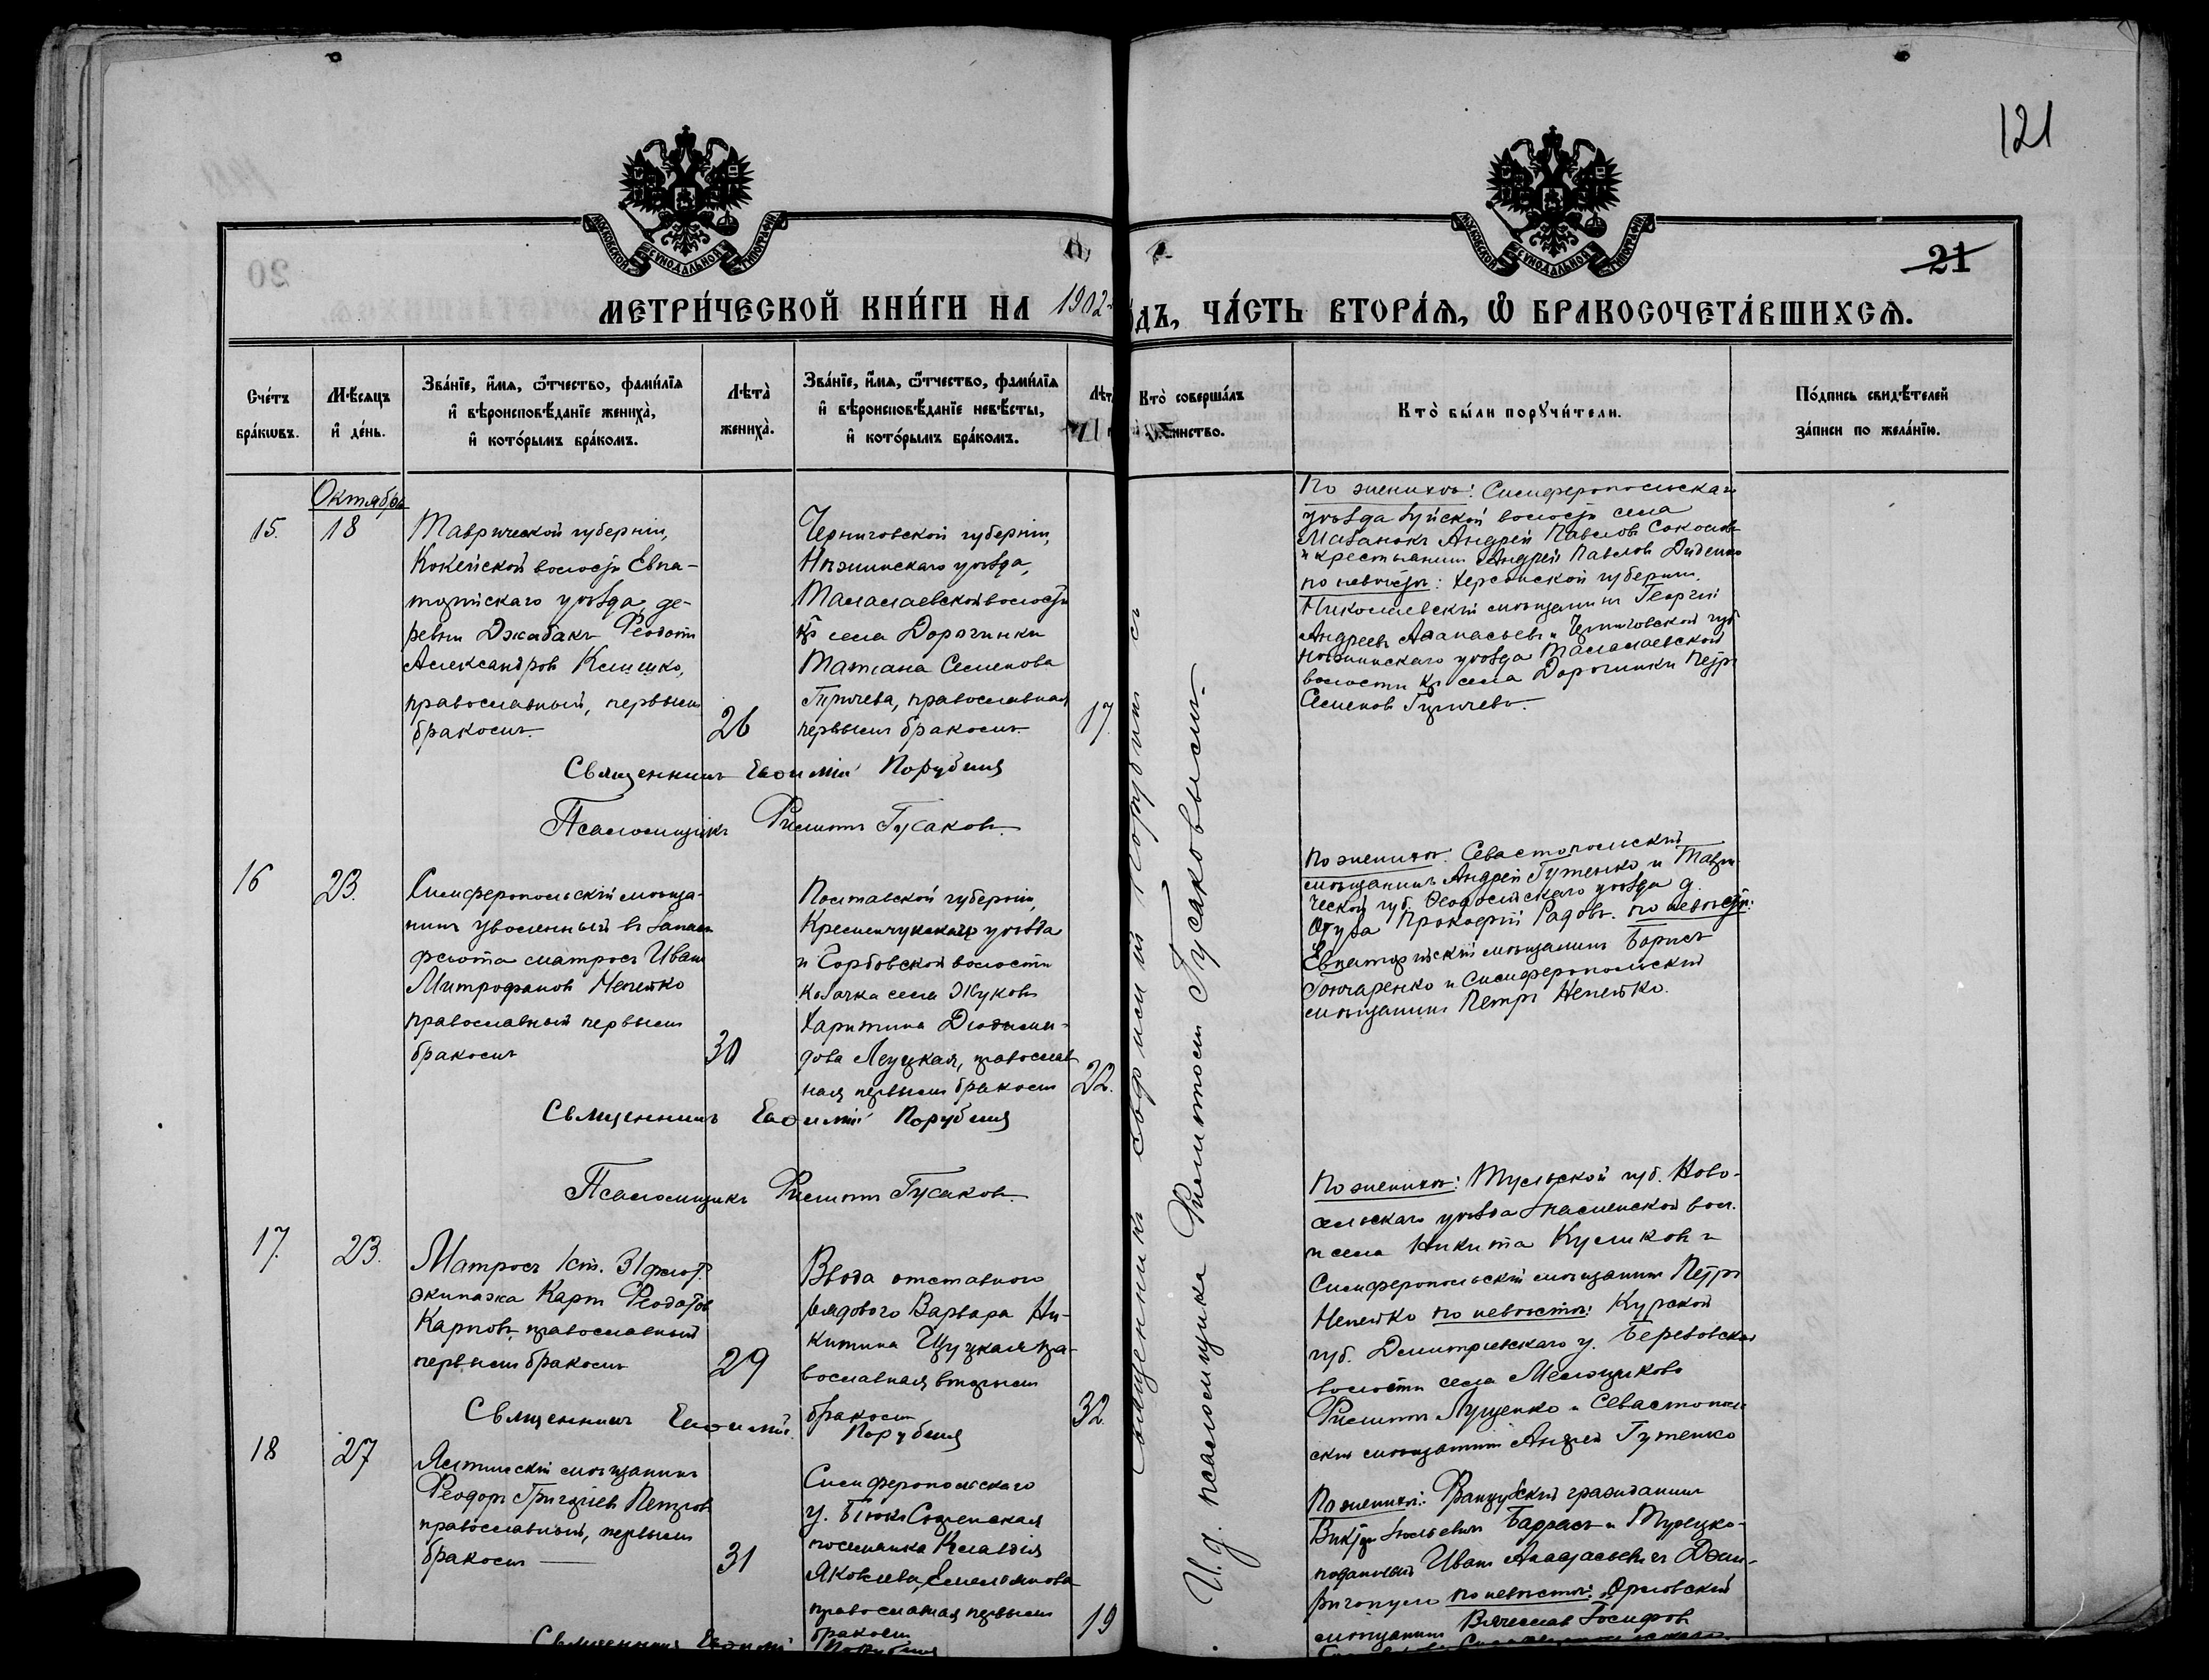 121
21
МОСКОВСКОЙ СѴНОДАЛЬНОЙ ТИПОГРАФІИ
МОСКОВСКОЙ СѴНОДАЛЬНОЙ ТИПОГРАФІИ
МЕТРИ́ЧЕСКОЙ КНИ́ГИ НА 1902
ДЪ, ЧА́СТЬ ВТОРА́Ѧ, Ѽ БРАКОСОЧЕТА́ВШИХСѦ.
Сче́тъ бра́кѡвъ.
Мѣ́сяцъ и҆ де́нь.
Зва́нїе, и҆́мя, ѻ҆́тчество, фами́лїя
и҆ вѣроисповѣ́данїе жениха̀,
и҆ кото́рымъ бра́комъ.
Лѣта̀ жениха̀.
Зва́нїе, и҆́мя, ѻ҆́тчество, фами́лїя
и҆ вѣроисповѣ́данїе невѣ́сты,
и҆ кото́рымъ бра́комъ.
Кто̀ соверша́лъ
Кто̀ бы́ли порꙋчи́тели.
По́дпись свидѣ́телей
за́писи по жела́нїю.
Октябрь
15. 18
Таврической губерніи,
Кокейской волости Евпа-
торійскаго уѣзда, де-
ревни Джабакъ Ѳеодотъ
Александровъ Клишко,
православный, первымъ
бракомъ. 26
Черниговской губерніи,
Нѣжинскаго уѣзда,
Талалаевской волости
кр села Дорогинки
Татіана Семенова
православная
первымъ бракомъ. 17.
По женихѣ: Симферопольскаго
уѣзда Зуйской волости села
Мазанокъ Андрей Павловъ Соколовъ
и крестьянинъ Андрей Павловъ Диденко
по невѣстѣ: Херсонской губерніи.
Николаевскій мѣщанинъ Георгій
Андреевъ Аѳанасьевъ и Черниговской губ
Нѣжинскаго уѣзда Талалаевской
волости кр села Дорогинки Петръ
Семеновъ
Священникъ Евѳимій Порубиля
Псаломщикъ Филиппъ Гусаковъ.
16 23.
Симферопольскій мѣща-
нинъ уволенный въ запасъ
флота матросъ Иванъ
Митрофановъ Непейко
православный первымъ
бракомъ 30
Полтавской губерніи,
Кременчукскаго уѣзда
волости
козачка села Жуковъ
Харитина
православ-
ная первымъ бракомъ 22.
По женихѣ: Севастопольскій
мѣщанинъ Андрей Гутенко и Таври-
ческой губ. Ѳеодосійскаго уѣзда д.
Отузъ Прокофій Радовъ. по невѣстѣ:
Евпаторійскій мѣщанинъ Борисъ
Гончаренко и Симферопольскій
мѣщанинъ Петръ Непейко.
Священникъ Евѳимій Порубиля
Псаломщикъ Филиппъ Гусаковъ.
17. 23.
Матросъ 1 ст. 31 флот.
экипажа Карпъ Ѳеодотовъ
Карповъ, православный
первымъ бракомъ 29
Вдова отставного
рядового Варвара Ни-
китина пра-
вославная вторымъ
бракомъ 32.
По женихѣ: Тульской губ. Ново-
сельскаго уѣзда вол.
и села Никита Куликовъ и
Симферопольскій мѣщанинъ Петръ
Непейко по невѣстѣ: Курской
губ. Дмитріевскаго у. Березовской
волости села
Филиппъ Луценко и Севастополь-
скій мѣщанинъ Андрей Гутенко
Священникъ Евѳимій Порубиля
18 27
Ялтинскій мѣщанинъ
Ѳеодоръ Григорьевъ Петровъ
православный, первымъ
бракомъ 31
Симферопольскаго
у.
поселянка Клавдія
Яковлева Емельянова
православная первымъ
бракомъ 19
По женихѣ: Французскій гражданинъ
Викторъ и Турецко-
подданный Иванъ
по невѣстѣ: Орловскій
мѣщанинъ Вячеславъ Іосифовъ
Священникъ Евѳимій Порубиля
Священникъ Евѳимій Порубиля съ
И. д. псаломщика Филиппомъ Гусаковымъ.